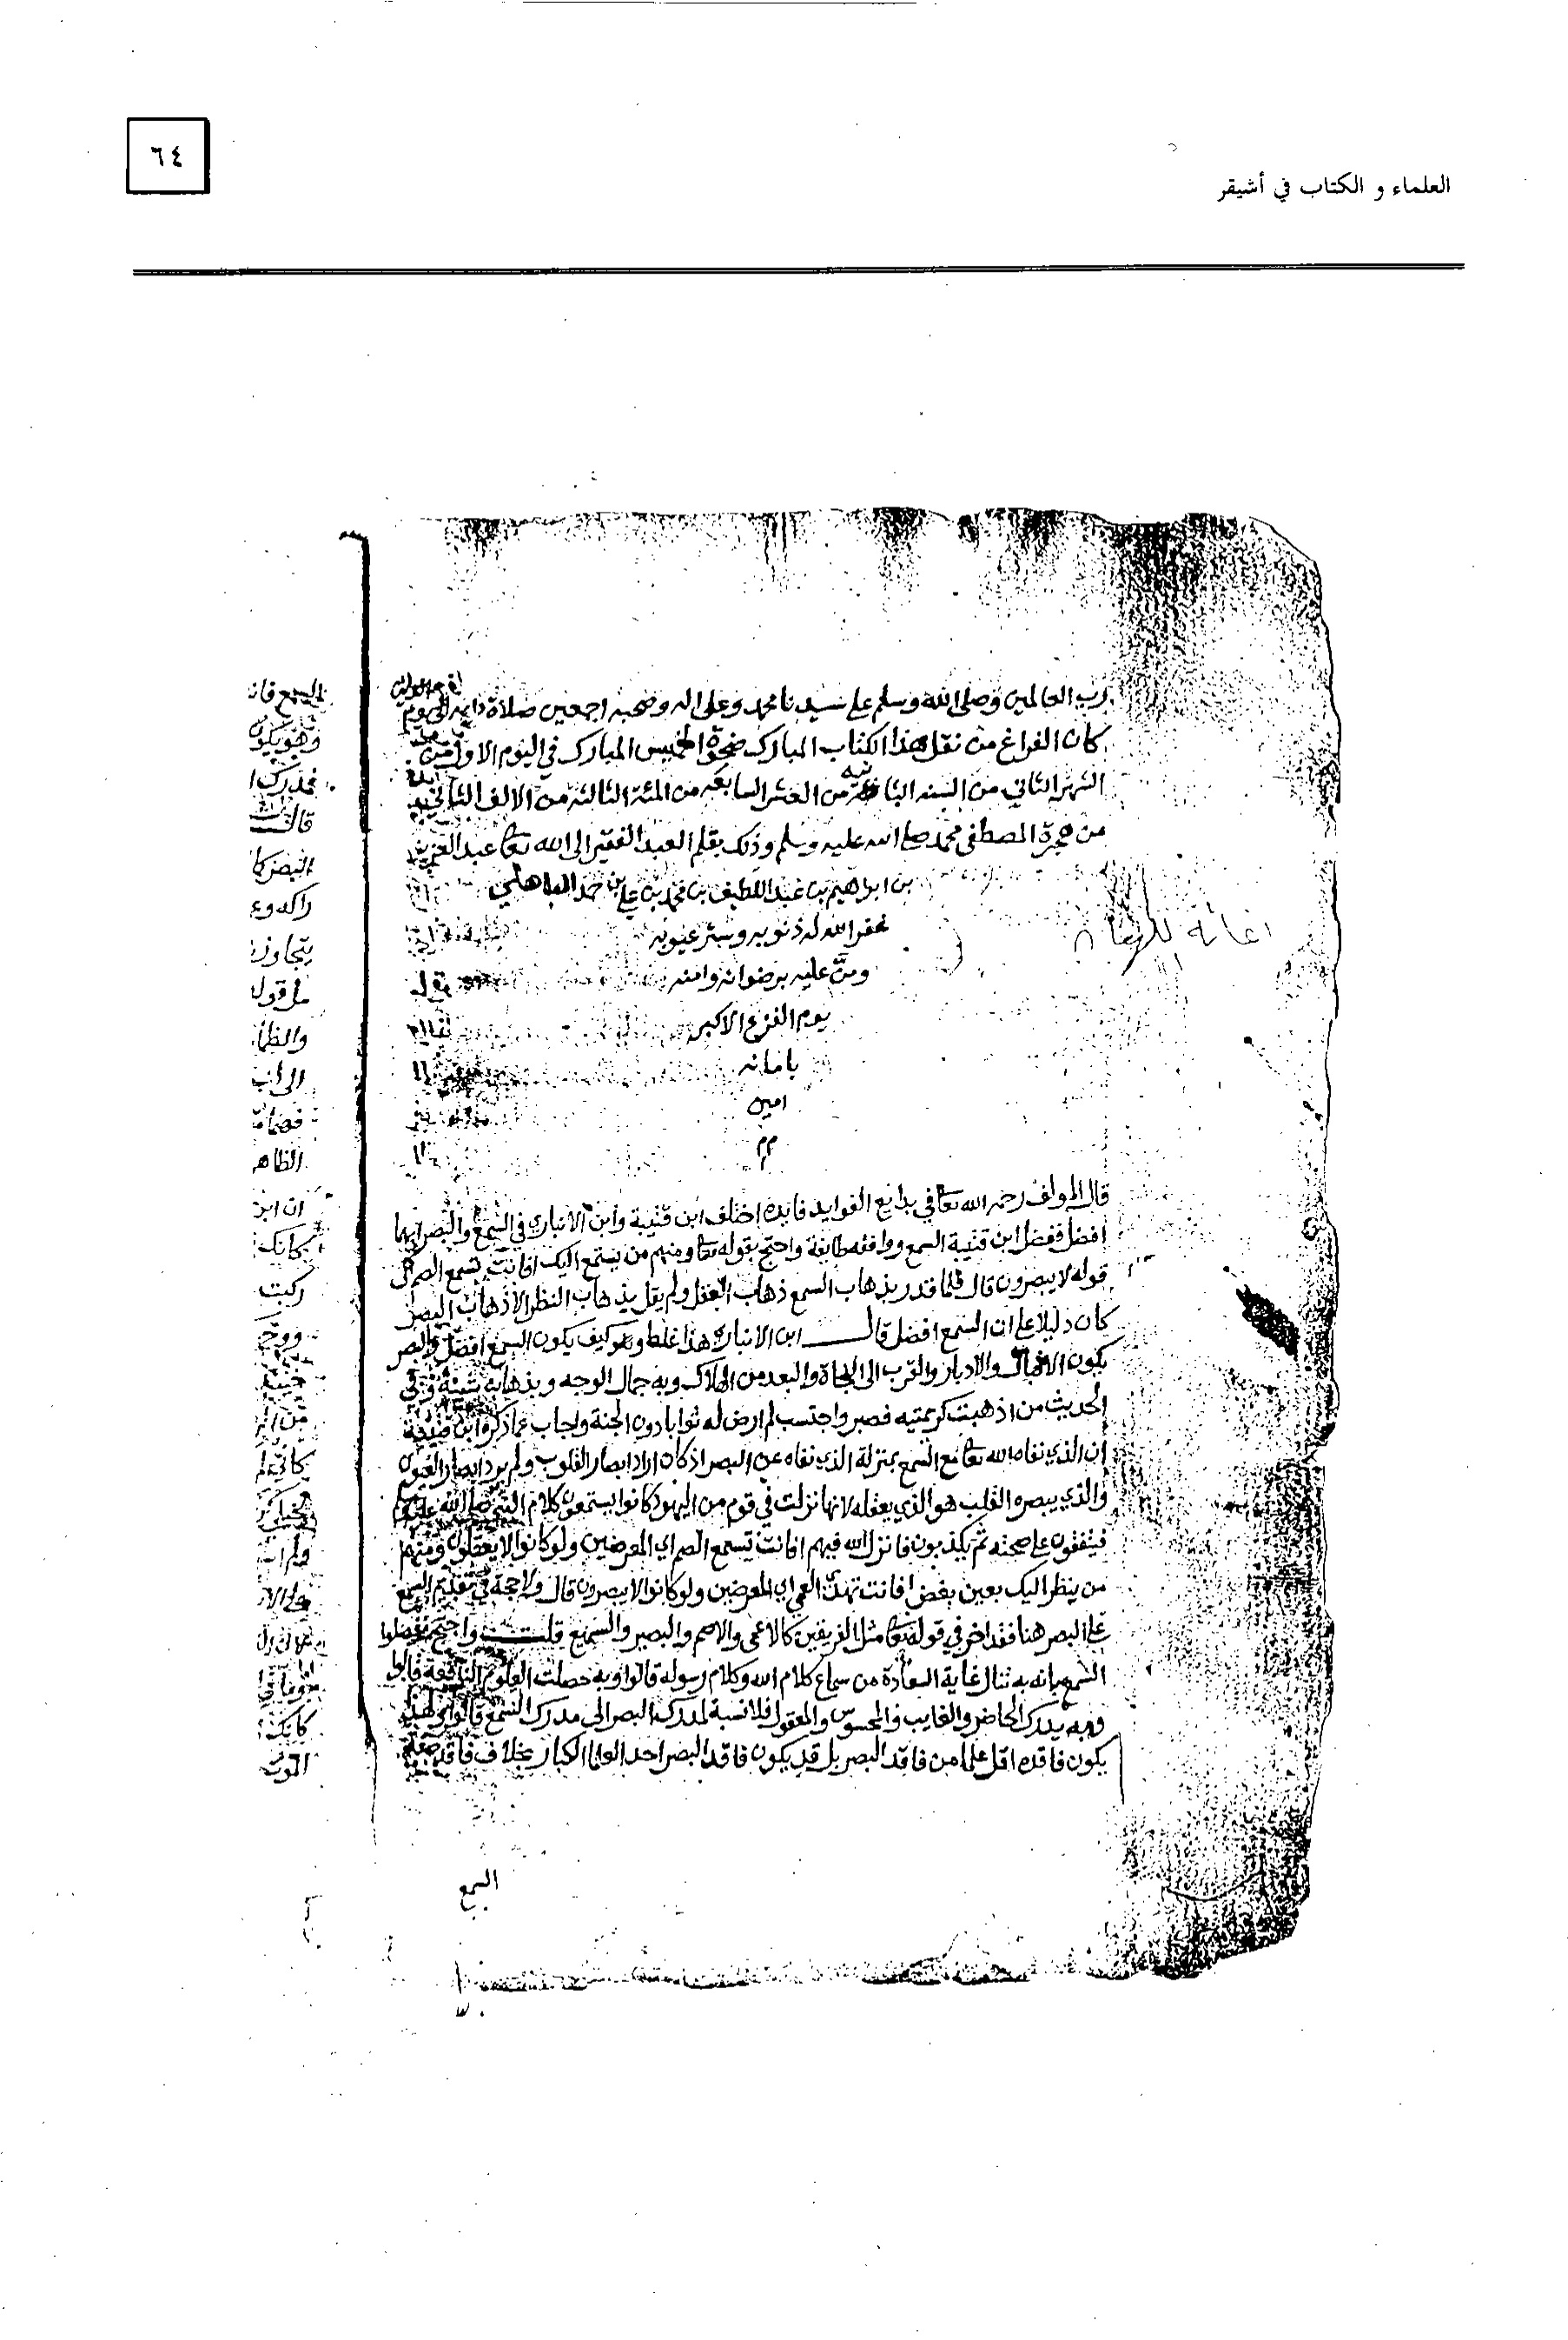 العلماء و الكتاب في أشيقر
٦٤
رب العالمين وصلى الله وسلم على سيدنا محمد وعلى اله وصحبه اجمعين صلاة دايمه الى يوم
كان الفراغ من نقل هذا الكتاب المبارك ضحوة الخميس المبارك في اليوم الاول من
الشهر الثاني من السنه الثانيه من العشر السابعه من المئة الثالثة من الالف الثاني
من هجرة المصطفى محمد صلى الله عليه وسلم وذلك بقلم العبد الفقير الى الله تعا عبد العزيز
بن ابراهيم بن عبد اللطيف بن محمد بن علي بن حمد الباهلي
غفر الله له ذنوبه وستر عيوبه
ومنّ عليه برضوانه وامنه
يوم الفزع الاكبر
بامانه
امين
اغاثة اللهفان
قال المولف رحمه الله تعا في بدايع الفوايد فايده اختلف ابن قتيبة وابن الانباري في السمع والبصر ايهما
افضل ففضل ابن قتيبة السمع ووافقه طايفة واحتج بقوله تعا ومنهم من يستمع اليك افانت تسمع الصم
قوله لا يبصرون قال فلما قدر بذهاب السمع ذهاب العقل ولم يقل بذهاب النظر الا ذهاب البصر
كان دليلا على ان السمع افضل قال ابن الانباري هذا غلط وكيف يكون السمع افضل والبصر
يكون الاقبال والادبار والقرب الى النجاة والبعد من الهلاك وبه جمال الوجه وبذهابه شينه وفي
الحديث من اذهبت كريمتيه فصبر واحتسب لم ارض له ثوابا دون الجنة واجاب عما ذكره ابن قتيبة
ان الذي نفاه الله تعا مع السمع بمنزلة الذي نفاه عن البصر اذ كان اراد ابصار القلوب ولم يرد ابصار العيون
والذي يبصره القلب هو الذي يعقله لانها نزلت في قوم من اليهود كانوا يستمعون كلام النبي صلى الله عليه وسلم
فيتفقون على صحته ثم يكذبون فانزل الله فيهم افانت تسمع الصم اي المعرضين ولو كانوا لا يعقلون ومنهم
من ينظر اليك بعين بغض افانت تهدي العمي اي المعرضين ولو كانوا لا يبصرون قال ولا حجة في تقديم السمع
على البصر هنا فقد اخر في قوله تعا مثل الفريقين كالاعمى والاصم والبصير والسميع قلت واحتج مفضلوا
السمع بانه به تنال غاية السعادة من سماع كلام الله وكلام رسوله قالوا وبه حصلت العلوم النافعة قالوا
وبه يدرك الحاضر والغايب والمحسوس والمعقول فلا نسبة لمدرك البصر الى مدرك السمع قالوا ولهذا
يكون فاقده اقل علما من فاقد البصر بل قد يكون فاقد البصر احد العلما الكبار بخلاف فاقد صفة
السمع
السمع فان
وهو يكون
قال
يتجاوز
والظا
الظاهر
ركبت
الموت